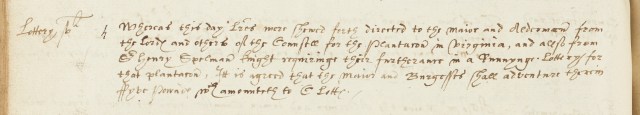 Lottery
Whereas this day Lres were shewed forth directed to the Maior and Aldermen from
the lords and others of the Counsell for the Plantacon in Virginia, and allso from
Sr Henry Spelman knight requiringe their furtherance in a Runnynge Lottery for
that plantacon, It is agreed that the Maior and Burgesses shall adventure therein
ffyve Pownde wch amounteth to C Lotts.